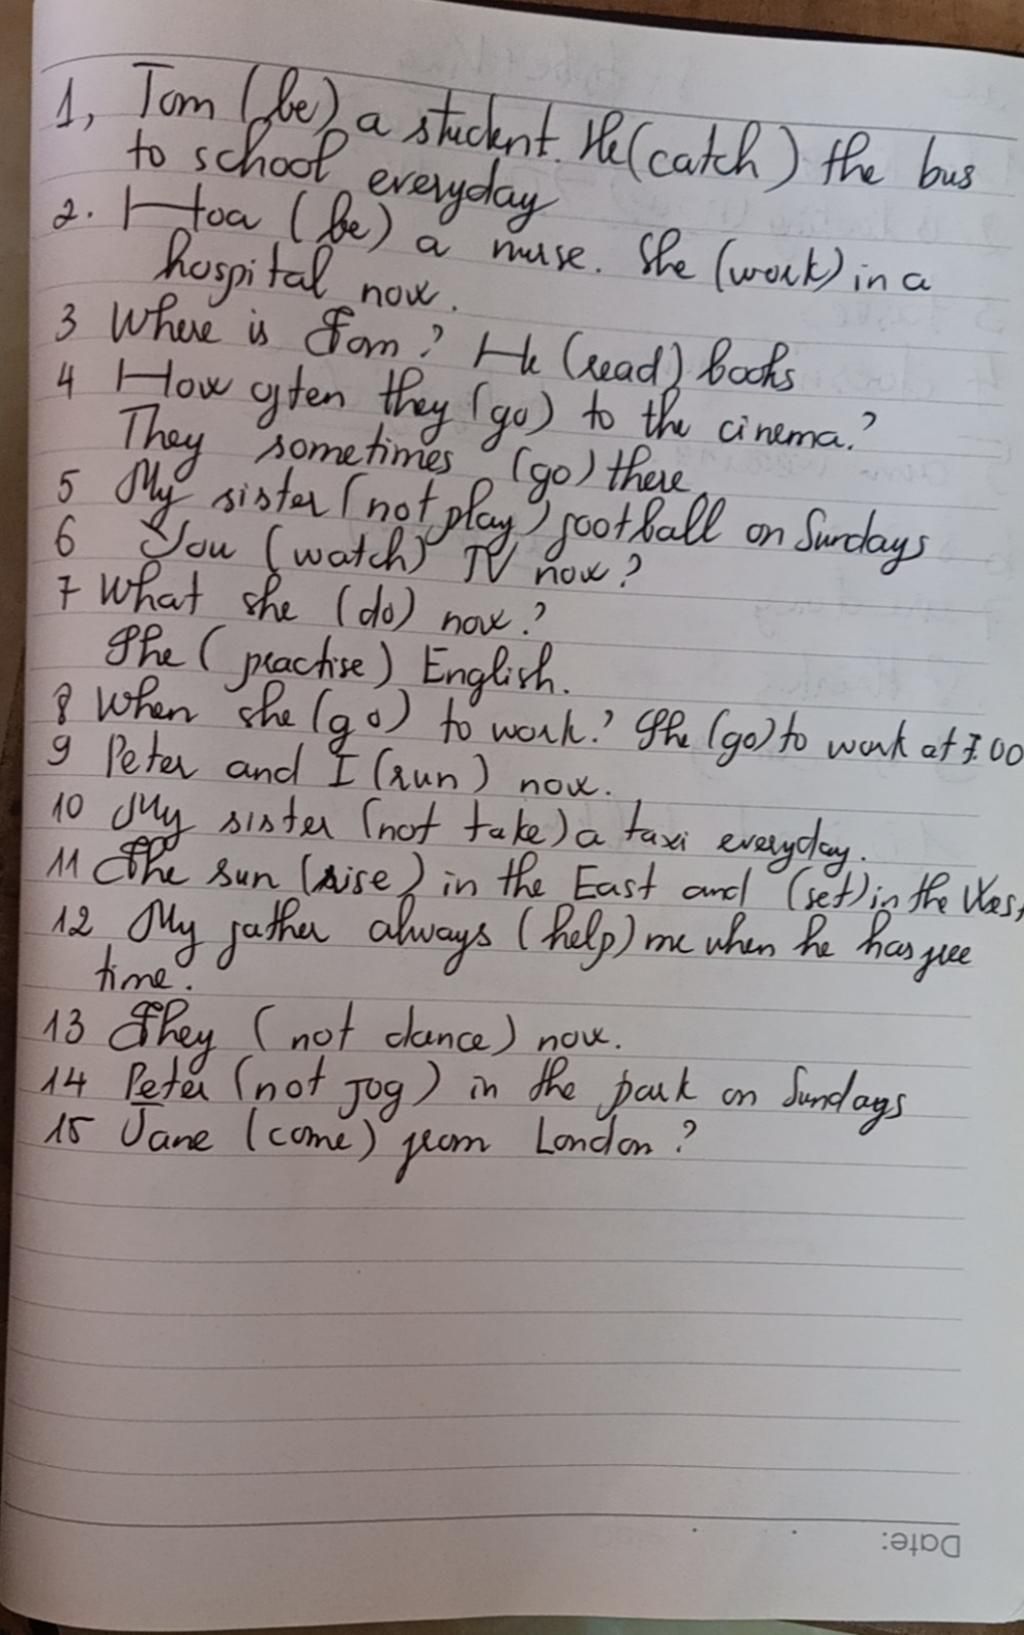 1, Tom (be) a student. He (catch) the bus
to school everyday
2. Hoa (be) a nurse. She (work) in a
hospital now.
3 Where is Tom? He (read) books
4 How often they (go) to the cinema?
They sometimes (go) there
5 My sister (not play) football on Sundays
6 You (watch) TV now?
7 What she (do) now?
She (practise) English.
8 When she (go) to work? She (go) to work at 7.00
9 Peter and I (run) now.
10 My sister (not take) a taxi everyday.
11 The sun (rise) in the East and (set) in the West
12 My father always (help) me when he has free
time.
13 They (not dance) now.
14 Peter (not jog) in the park on Sundays
15 Jane (come) from London?
Date: